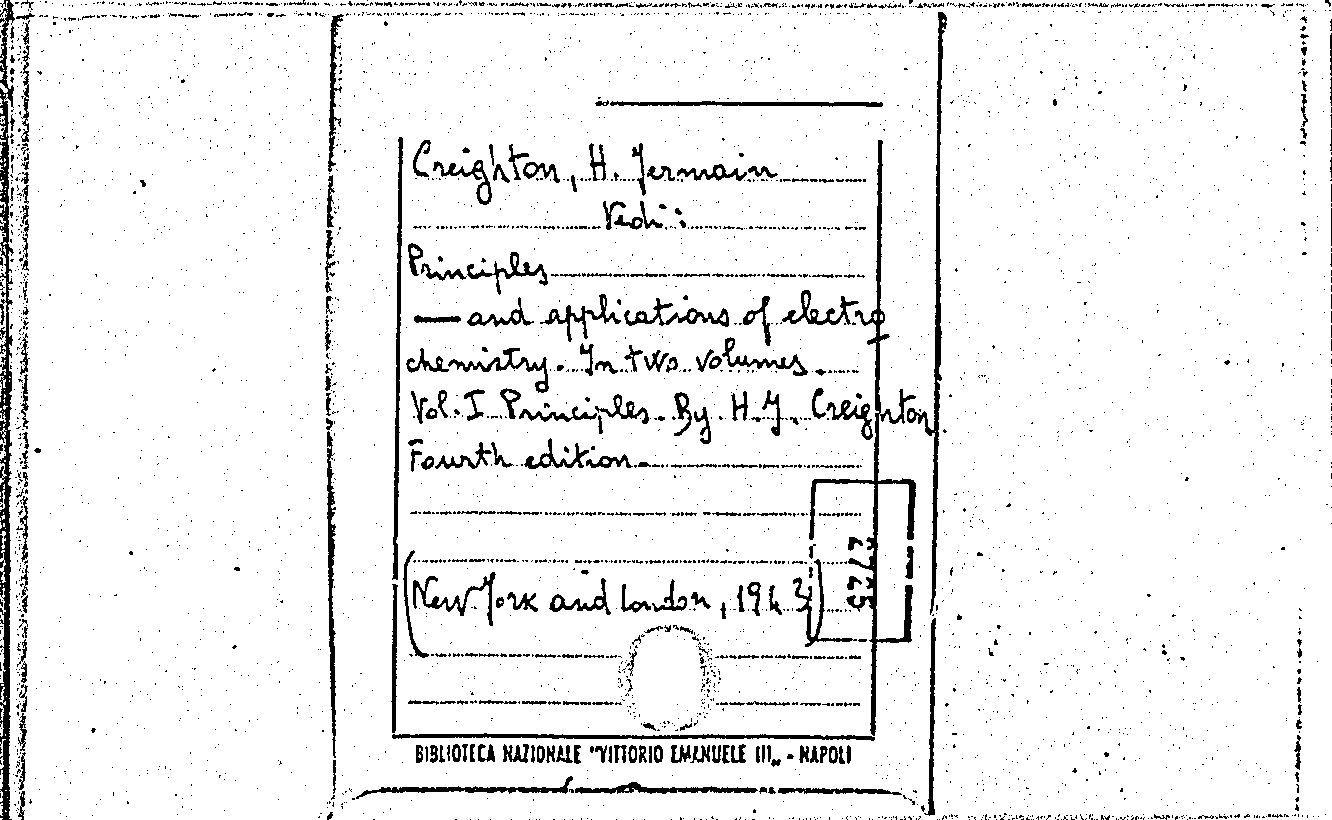 Creighton, H. Jermain
Vedi:
Principles
— and applications of electro
chemistry. In two volumes.
Vol. I Principles. By H.J. Creighton
Fourth edition.
(New York and London, 1943)
BIBLIOTECA NAZIONALE "VITTORIO EMANUELE III„ - NAPOLI